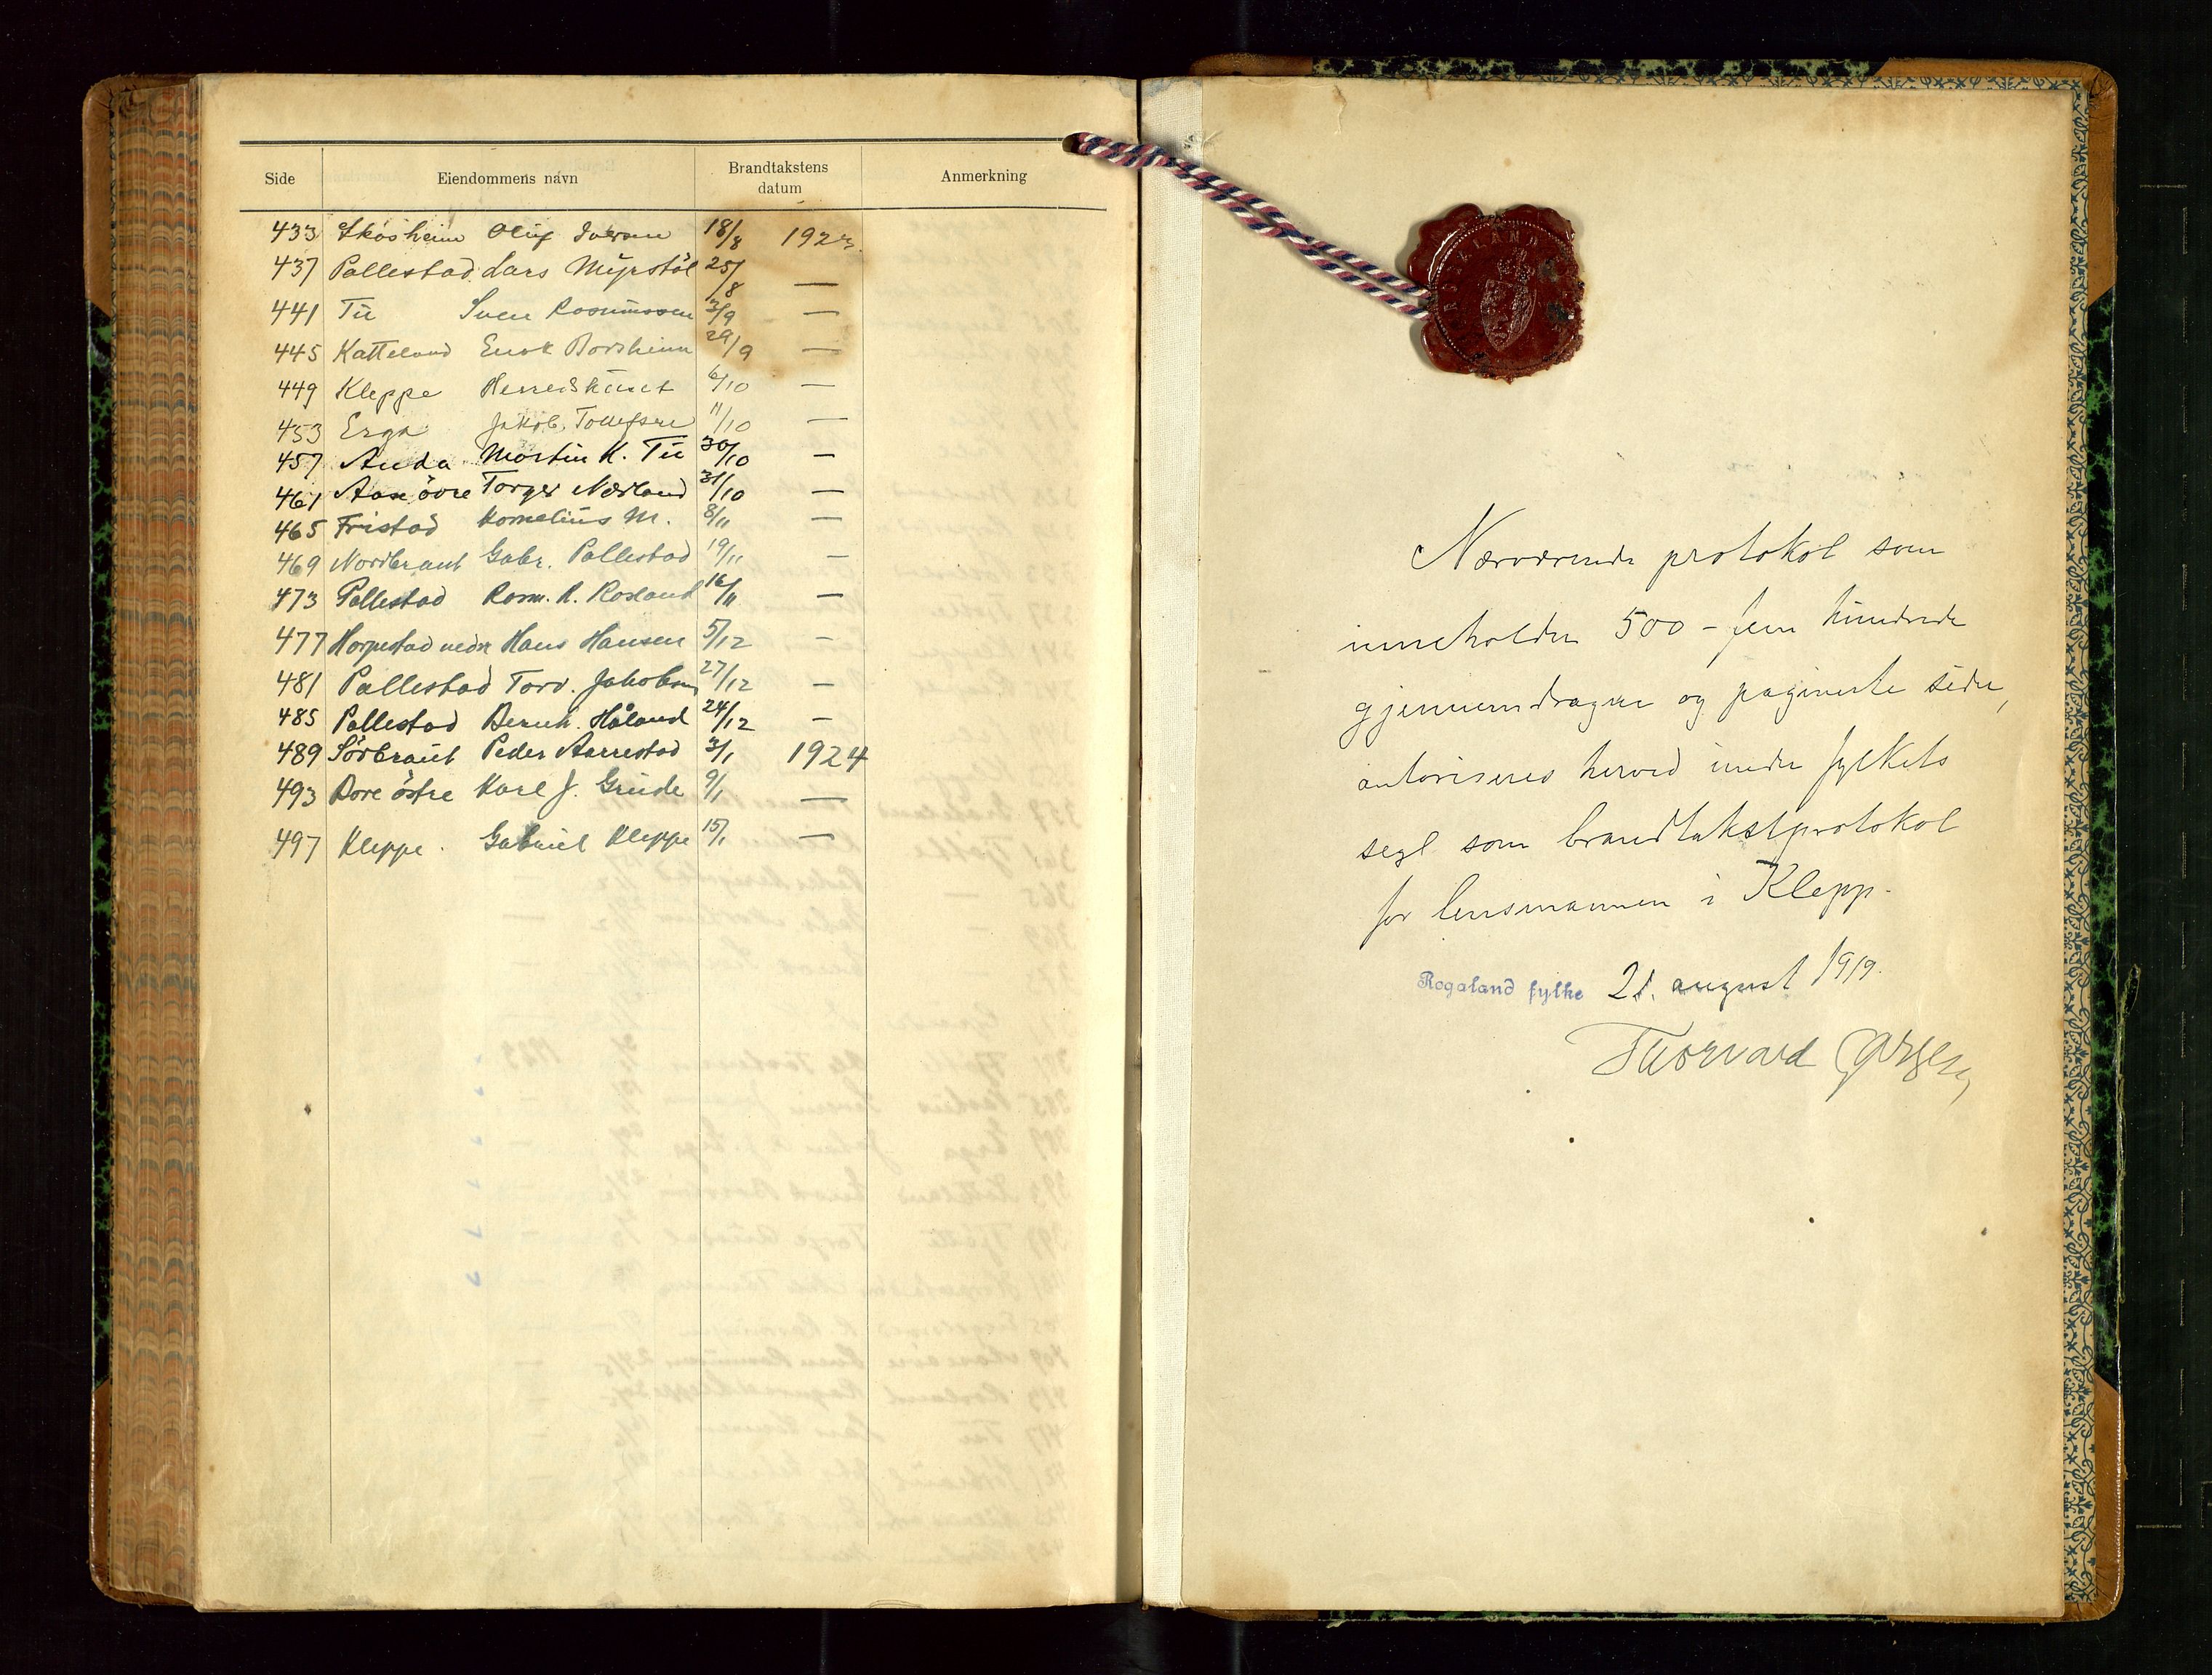 Side Eiendommens navn Brandtakstens datum Anmerkning
433 Skasheim Oluf 18/8 1923.
437 Pallestad Lars Myrstöl 25/8 —
441 Tu Sven Rasmussen 3/9 —
445 Katteland Enok Borsheim 29/9 —
449 Kleppe Herredshuset 6/10 —
453 Erga Jakob Tollefsen 11/10 —
457 Anda Martin K. Tu 30/10 —
461 Aase övre Torger Nærland 31/10 —
465 Fristad Kornelius M. 8/11 —
469 Nordbraut Gabr. Pallestad 19/11 —
473 Pallestad Rasm. R. Rosland 16/11 —
477 Horpestad nedr Hans Hansen 5/12 —
481 Pallestad Torv. Jakobsen 27/12 —
485 Pallestad Bernh. Håland 24/12 —
489 Sörbraut Peder Aarrestad 3/1 1924
493 Bore östre Karl J. Grude 9/1 —
497 Kleppe Gabriel Kleppe 15/1 —
Nærværende protokol som
inneholder 500 – fem hundrede
gjennemdragne og paginerte sider,
autoriseres herved under fylkets
segl som brandtakstprotokol
for lensmannen i Klepp.
Rogaland fylke 21. august 1919.
Thorvard